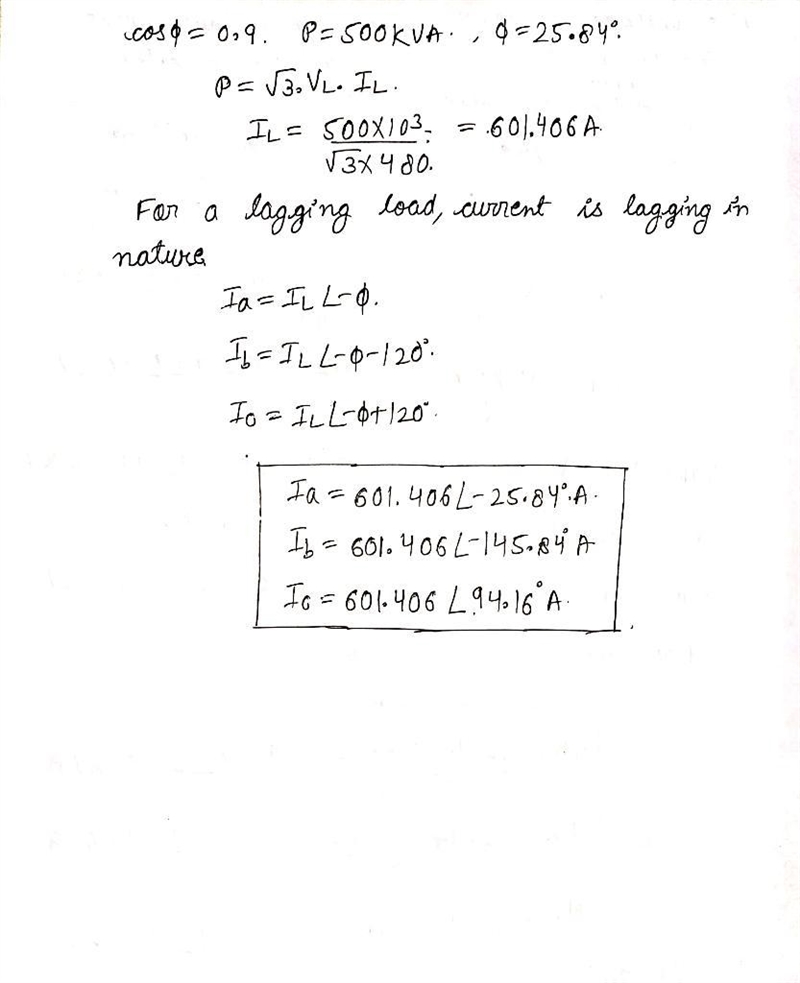 cosϕ = 0.9. P=500KVA. , ϕ=25.84°.
P = √3. VL. IL.
IL = 500X10³ / √3X480. = 601.406A
For a lagging load, current is lagging in
nature
Ia = IL ∠-ϕ.
Ib = IL ∠-ϕ-120°.
Ic = IL ∠-ϕ+120°.
Ia = 601.406 ∠-25.84°.A.
Ib = 601.406 ∠-145.84° A
Ic = 601.406 ∠94.16° A.